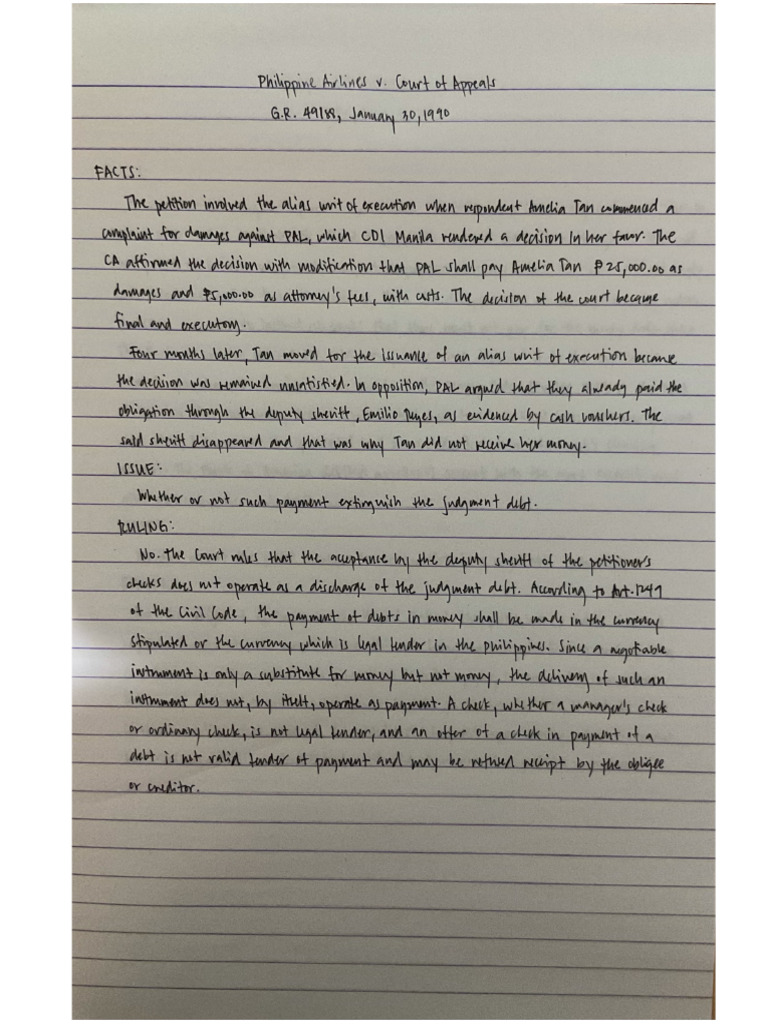 Philippine Airlines v. Court of Appeals
G.R. 49188, January 30, 1990
FACTS:
The petition involved the alias writ of execution when respondent Amelia Tan commenced a
complaint for damages against PAL, which CDI Manila rendered a decision in her favor. The
CA affirmed the decision with modification that PAL shall pay Amelia Tan ₱25,000.00 as
damages and ₱5,000.00 as attorney's fees, with costs. The decision of the court became
final and executory.
Four months later, Tan moved for the issuance of an alias writ of execution because
the decision was remained unsatisfied. In opposition, PAL argued that they already paid the
obligation through the deputy sheriff, Emilio Reyes, as evidenced by cash vouchers. The
said sheriff disappeared and that was why Tan did not receive her money.
ISSUE:
Whether or not such payment extinguish the judgment debt.
RULING:
No. The Court rules that the acceptance by the deputy sheriff of the petitioner's
checks does not operate as a discharge of the judgment debt. According to Art. 1249
of the Civil Code, the payment of debts in money shall be made in the currency
stipulated or the currency which is legal tender in the Philippines. Since a negotiable
instrument is only a substitute for money but not money, the delivery of such an
instrument does not, by itself, operate as payment. A check, whether a manager's check
or ordinary check, is not legal tender, and an offer of a check in payment of a
debt is not valid tender of payment and may be refused receipt by the obligee
or creditor.